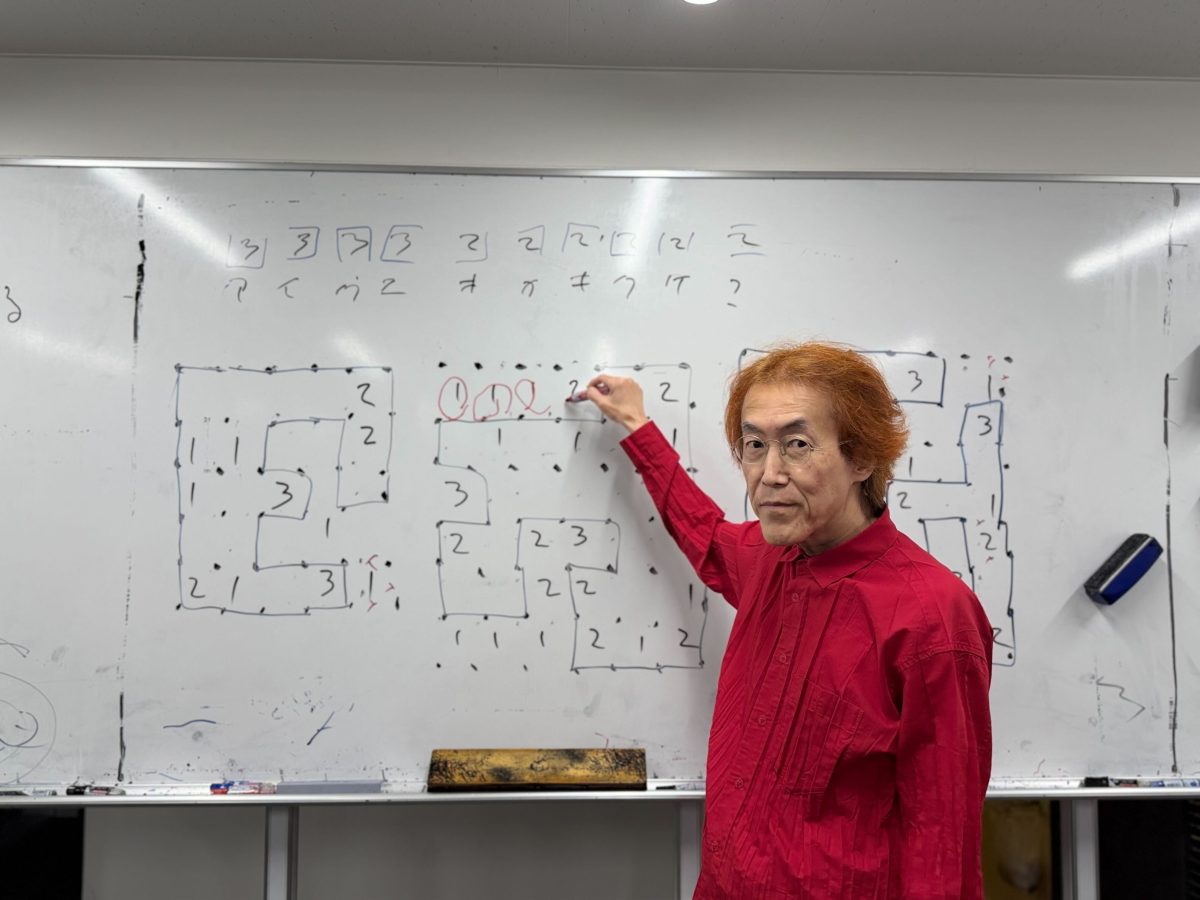 3 3 3 3 2 2 2 2 2 2
?
3
2
1 1 2
1 3
1
2 1 3 1
1 1 2 2 2
1 1 1
3
2 2 3
2 2 1
1 1 1 2 1 2
3 1
3
1
2 1
2
2